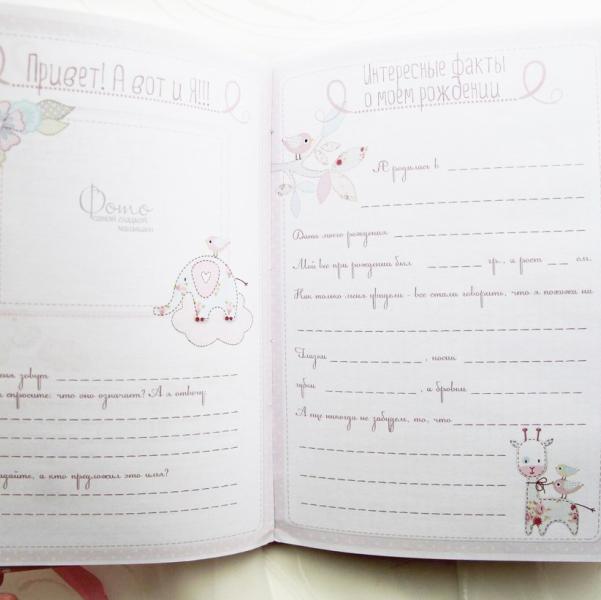 Привет! А вот и Я!!!
Фото
самой сладкой
малышки
зовут
спросите: что оно означает? А я отвечу:
а кто предложил это имя?
Интересные факты
о моём рождении
Я родилась в
Дата моего рождения
Мой вес при рождении был гр., и рост см.
Как только меня увидели - все стали говорить, что я похожа на
Глазки , носик
губки , и бровки
А еще никогда не забудем, то, что